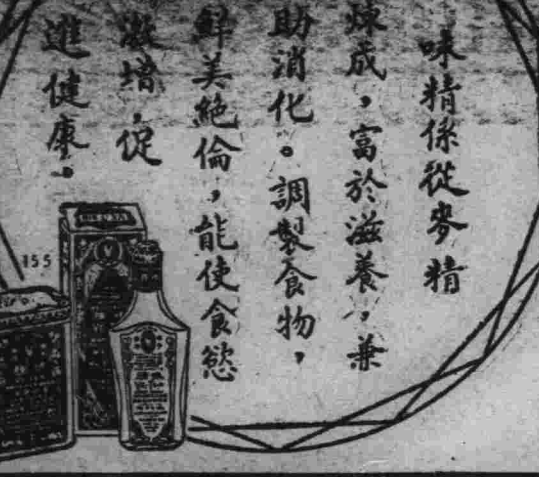 味精係從麥精
煉成，富於滋養，兼
助消化。調製食物，
鮮美絕倫，能使食慾
激增，促
進健康。
155